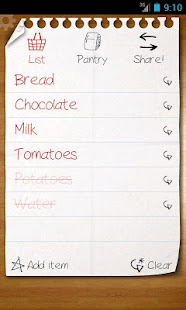 3G 9:10
List Pantry Share!
Bread
Chocolate
Milk
Tomatoes
Potatoes
Water
Add item Clear